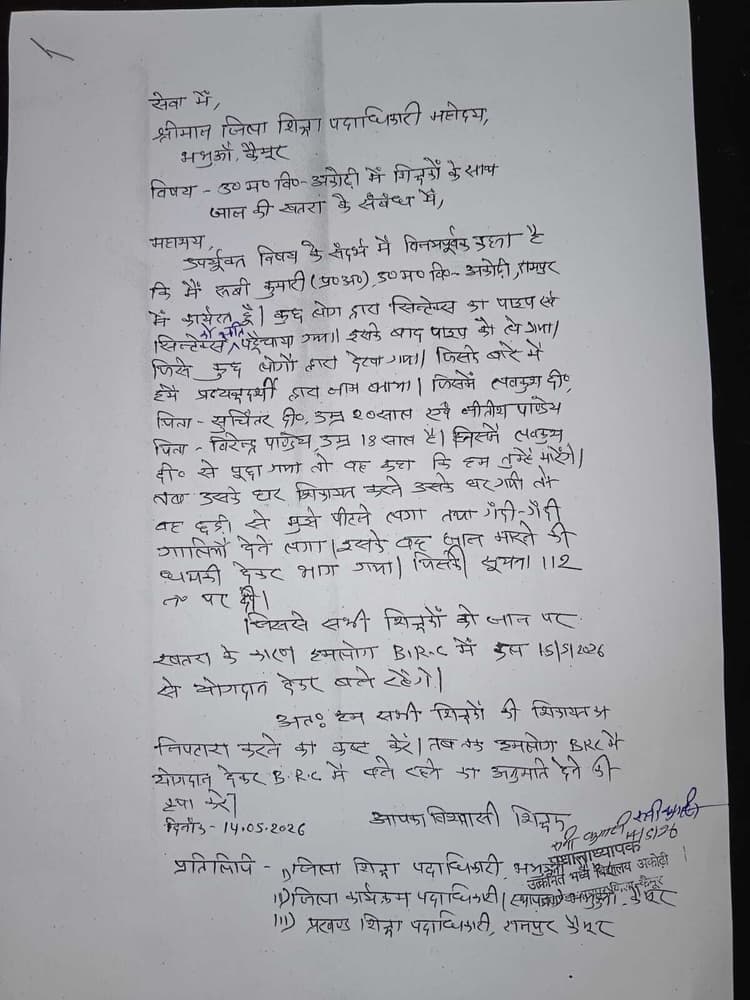 सेवा में,
श्रीमान जिला शिक्षा पदाधिकारी महोदय,
भभुआँ, कैमूर
विषय - उ० म० वि०- अकोढ़ी में शिक्षकों के साथ
जान की खतरा के संबंध में,
महाशय,
उपर्युक्त विषय के संदर्भ में विनम्रपूर्वक कहना है
कि मैं रूबी कुमारी (प्र०अ०), उ० म० वि०- अकोढ़ी, रामपुर
में कार्यरत हूँ। कुछ लोग द्वारा सिन्टेक्स का पाइप एवं
सिन्टेक्स को क्षति पहुँचाया गया। इसके बाद पाइप को ले गया।
जिसे कुछ लोगों द्वारा देखा गया। जिसके बारे में
हमें प्रत्यक्षदर्शी द्वारा नाम आया। जिसमें लवकुश दी०,
पिता - सुचितर दी०, उम्र 20 साल एवं नीतीश पाण्डेय
पिता - विरेन्द्र पाण्डेय, उम्र 18 साल है। जिसमें लवकुश
दी० से पूछा गया तो वह कहा कि हम तुम्हें मारेंगे।
तब उसके घर शिकायत करने उसके घर गयी तो
वह छड़ी से मुझे पीटने लगा तथा गंदी-गंदी
गालियाँ देने लगा। इसके बाद जान मारने की
धमकी देकर भाग गया। जिसकी सूचना 112
न० पर दी।
जिससे सभी शिक्षकों को जान पर
खतरा के कारण हमलोग B.R.C में कल 15/5/2026
से योगदान देकर बने रहेंगे।
अतः हम सभी शिक्षकों की शिकायत का
निपटारा करने का कष्ट करें। तब तक हमलोग BRC में
योगदान देकर B.R.C में बने रहने का अनुमति देने की
कृपा करें।
आपका विश्वासी शिक्षक
दिनांक - 14.05.2026
रूबी कुमारी
14/5/26
प्रधानाध्यापक
उत्क्रमित मध्य विद्यालय अकोढ़ी
प्रतिलिपि - i) जिला शिक्षा पदाधिकारी, भभुआँ
ii) जिला कार्यक्रम पदाधिकारी (स्थापना) भभुआँ, कैमूर
iii) प्रखण्ड शिक्षा पदाधिकारी, रामपुर कैमूर